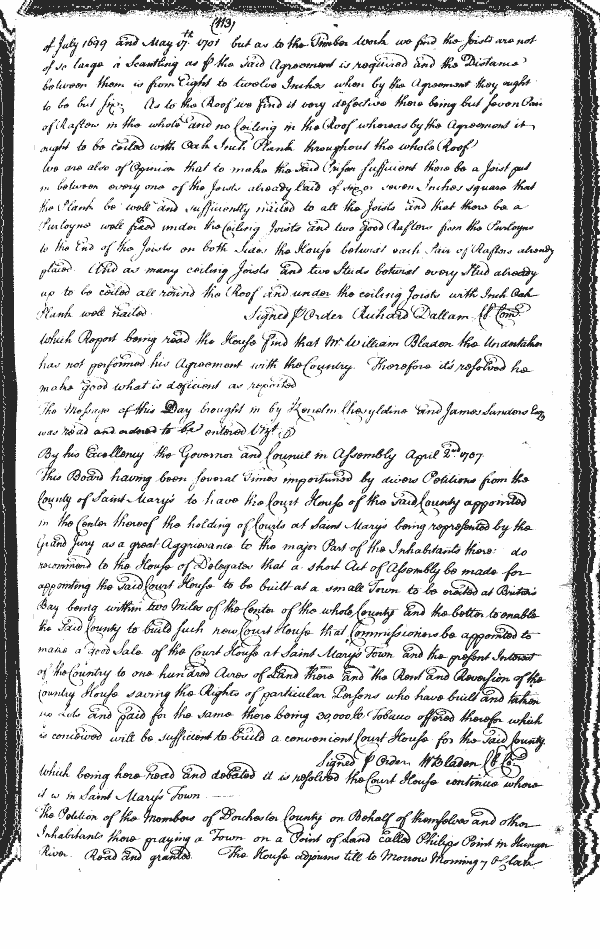 (113)
of July 1699 and May 17th 1701 but as to the Timber Work we find the Joists are not
of so large a Scantling as p the said Agreement is required and the Distance
between them is from Eight to twelve Inches when by the Agreement they ought
to be but six. As to the Roof we find it very defective there being but seven Pair
of Rafters in the whole and no Ceiling in the Roof whereas by the Agreement it
ought to be ceiled with Oak Inch Plank throughout the whole Roof
we are also of Opinion that to make the said Prison sufficient there be a Joist put
in between every one of the Joists already laid of six or seven Inches square that
the Plank be well and sufficiently nailed to all the Joists and that there be a
Purloyne well fixed under the Ceiling Joists and two good Rafters from the Purloyns
to the End of the Joists on both Sides the House betwixt each Pair of Rafters already
placed And as many ceiling Joists and two Studs betwixt every Stud already
up to be ceiled all round the Roof and under the ceiling Joists with Inch Oak
Plank well nailed Signed p Order Richard Dallam Cl Comee
Which Report being read the House find that Mr William Bladen the Undertaker
has not performed his Agreement with the Country Therefore it's resolved he
make good what is deficient as reported
The Message of this Day brought in by Kenelm Cheseldine and James Sanders Esqrs
was read and ordered to be entered Vizt
By his Excellency the Governor and Council in Assembly April 2nd 1707
This Board having been several Times importuned by divers Petitions from the
County of Saint Mary's to have the Court House of the said County appointed
in the Center thereof the holding of Courts at Saint Mary's being represented by the
Grand Jury as a great Aggrievance to the major Part of the Inhabitants there: do
recommend to the House of Delegates that a short Act of Assembly be made for
appointing the said Court House to be built at a small Town to be erected at Britton's
Bay being within two Miles of the Center of the whole County and the better to enable
the said County to build such new Court House that Commissioners be appointed to
make a good Sale of the Court House at Saint Mary's Town and the present Interest
of the Country to one hundred Acres of Land there and the Rent and Reversion of the
Country House saving the Rights of particular Persons who have built and taken
up Lots and paid for the same there being 30,000 lb Tobacco offered therefor which
is conceived will be sufficient to build a convenient Court House for the said County
Signed p Order W Bladen Cl Co
Which being here read and debated it is resolved the Court House continue where
it is in Saint Mary's Town
The Petition of the Members of Dorchester County on Behalf of themselves and other
Inhabitants there praying a Town on a Point of Land called Philips Point in Hunger
River Read and granted The House adjourns till to Morrow Morning 7 o'Clock